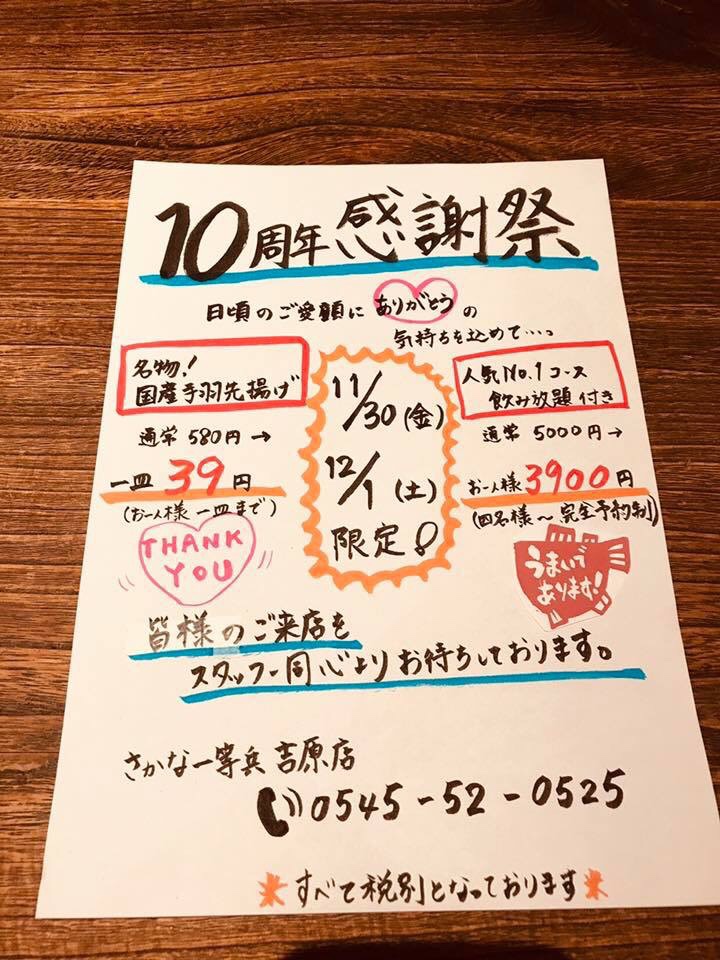 10周年感謝祭
日頃のご愛顧にありがとうの
気持ちを込めて…。
名物!
国産手羽先揚げ
通常 580円→
一皿 39円
(お一人様 一皿まで)
THANK
YOU
11/30(金)
12/1(土)
限定!
人気No.1コース
飲み放題付き
通常 5000円→
お一人様 3900円
(四名様〜完全予約制)
うまいで
あります!
皆様のご来店を
スタッフ一同心よりお待ちしております。
さかな一等兵 吉原店
0545-52-0525
すべて税別となっております